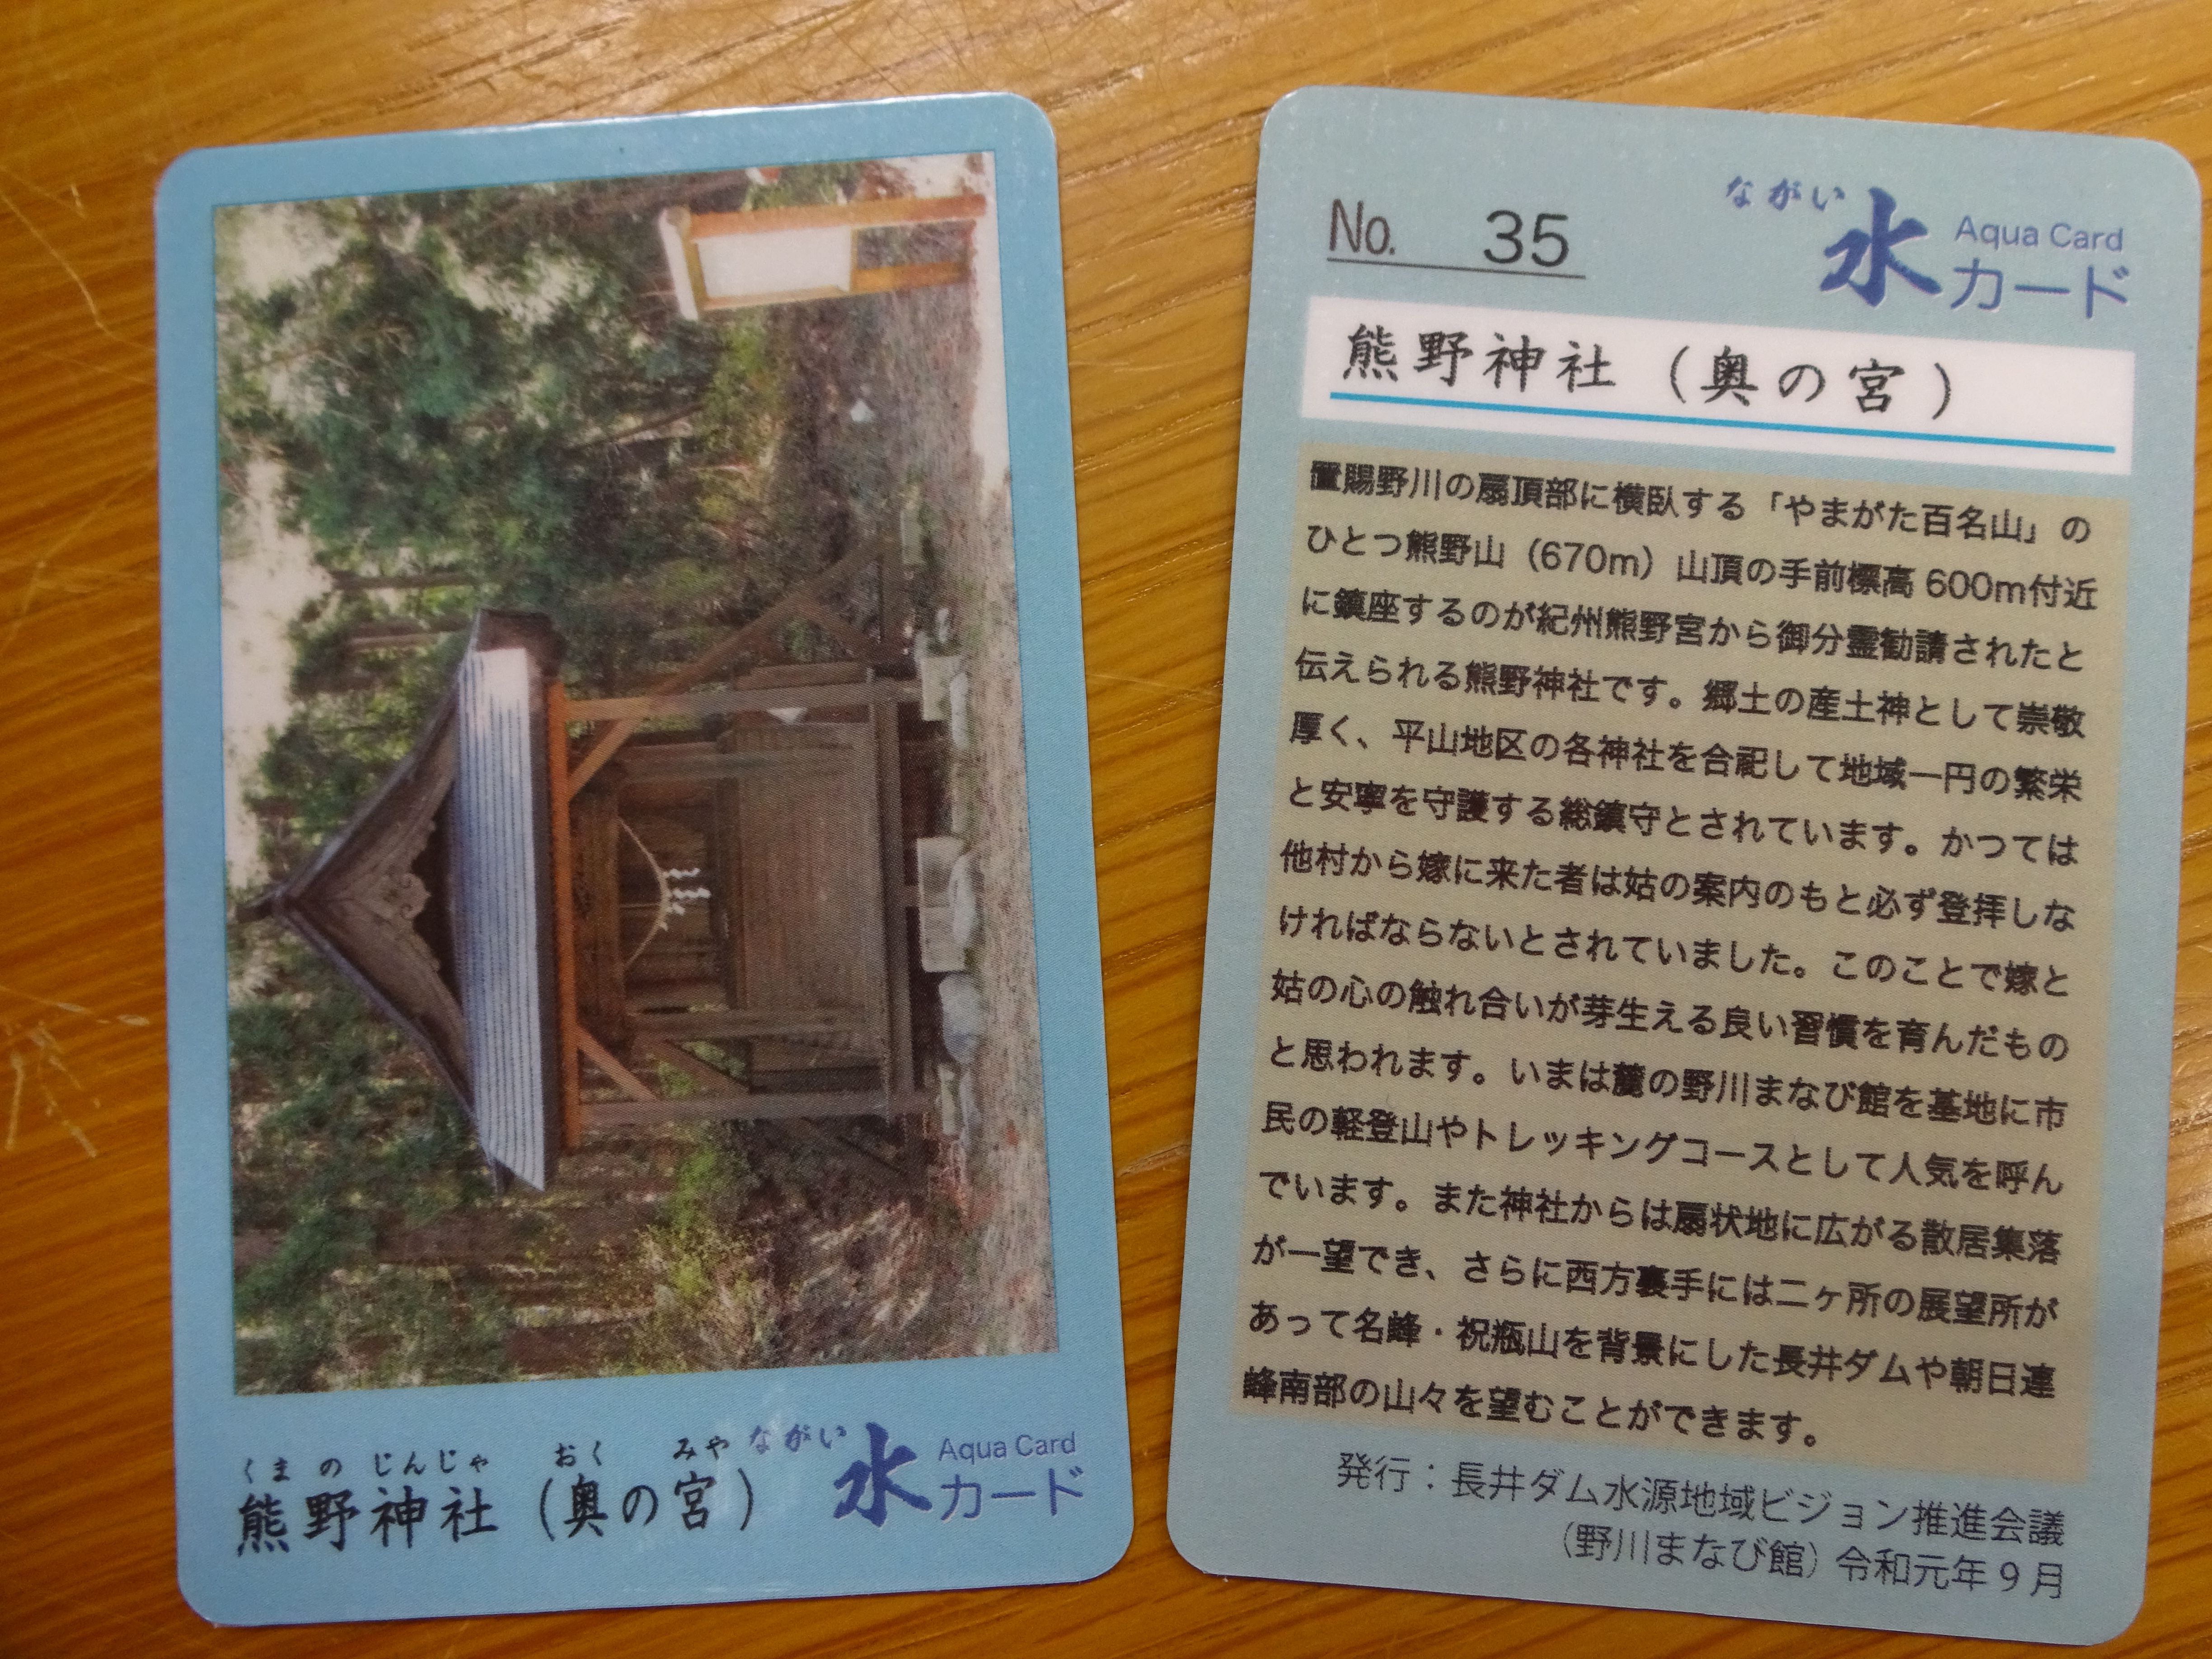 くまのじんじゃ おく みや
熊野神社（奥の宮）
ながい
水カード
Aqua Card
No. 35
ながい
水カード
Aqua Card
熊野神社（奥の宮）
置賜野川の扇頂部に横臥する「やまがた百名山」の
ひとつ熊野山（670m）山頂の手前標高600m付近
に鎮座するのが紀州熊野宮から御分霊勧請されたと
伝えられる熊野神社です。郷土の産土神として崇敬
厚く、平山地区の各神社を合祀して地域一円の繁栄
と安寧を守護する総鎮守とされています。かつては
他村から嫁に来た者は姑の案内のもと必ず登拝しな
ければならないとされていました。このことで嫁と
姑の心の触れ合いが芽生える良い習慣を育んだもの
と思われます。いまは麓の野川まなび館を基地に市
民の軽登山やトレッキングコースとして人気を呼ん
でいます。また神社からは扇状地に広がる散居集落
が一望でき、さらに西方裏手には二ヶ所の展望所が
あって名峰・祝瓶山を背景にした長井ダムや朝日連
峰南部の山々を望むことができます。
発行：長井ダム水源地域ビジョン推進会議
（野川まなび館）令和元年９月